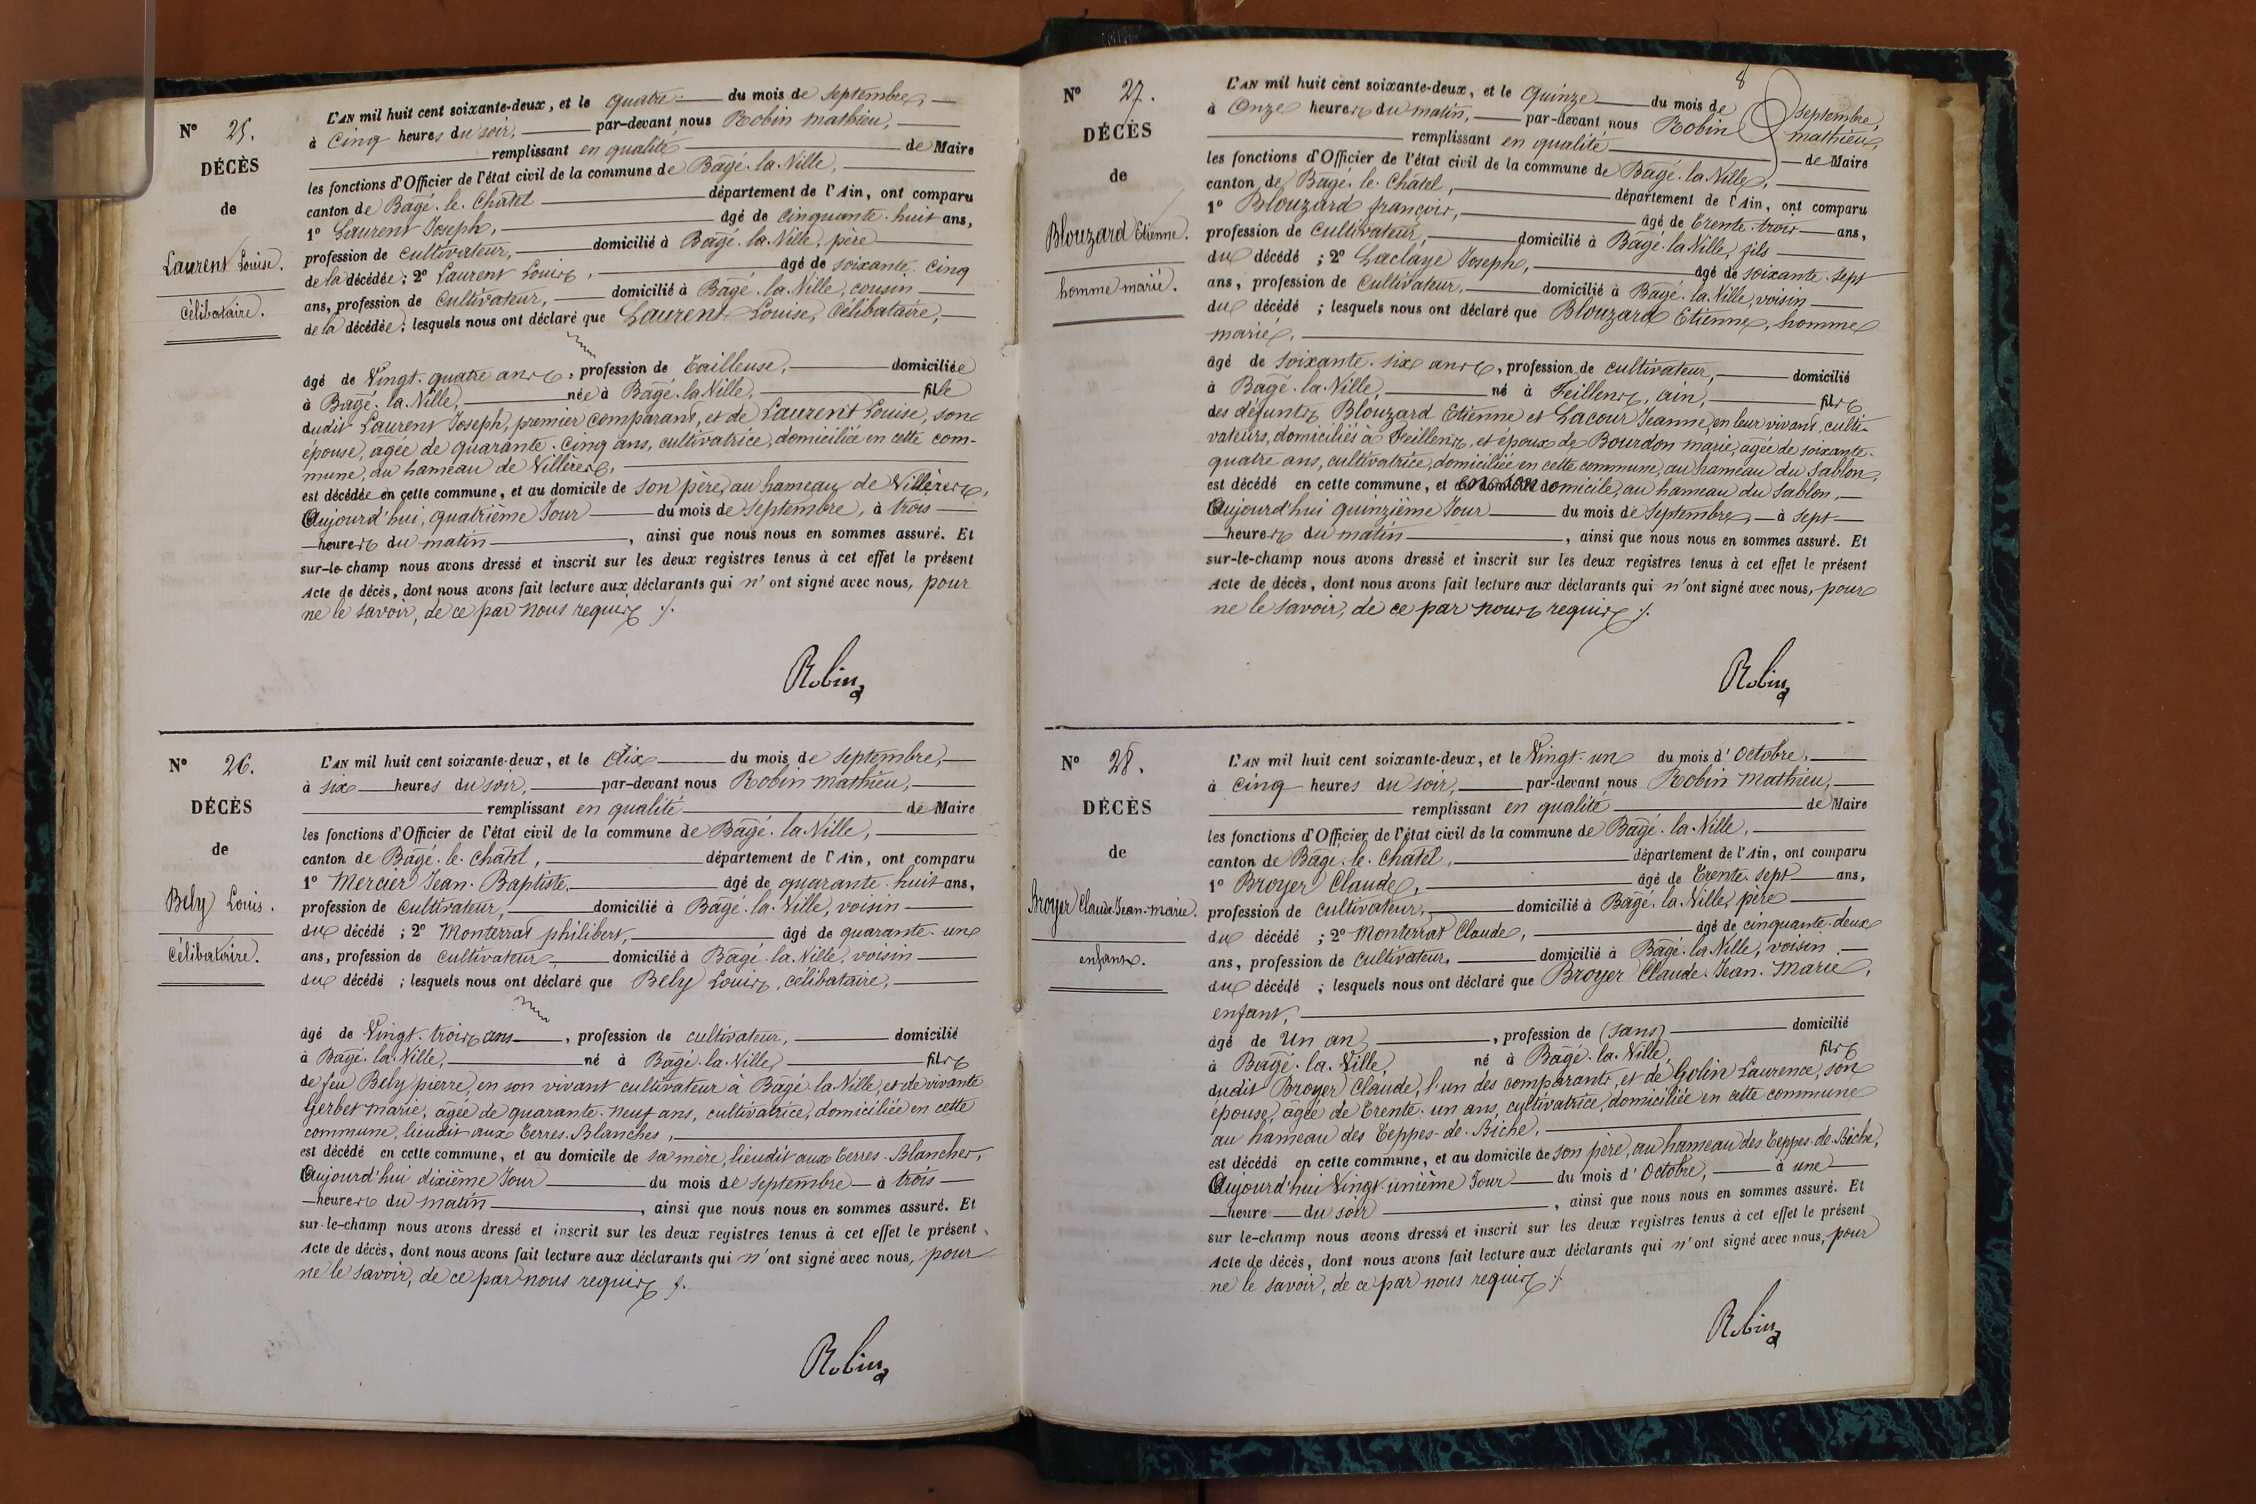 N° 25.
DÉCÈS
de
Laurent Louise.
Célibataire.
L'AN mil huit cent soixante-deux, et le quatre du mois de septembre,
à cinq heures du soir, par-devant nous Robin Mathieu,
remplissant en qualité de Maire
les fonctions d'Officier de l'état civil de la commune de Bagé-la-Ville,
canton de Bagé-le-Châtel département de l'Ain, ont comparu
1° Laurent Joseph, âgé de cinquante-huit ans,
profession de cultivateur, domicilié à Bagé-la-Ville, père
de la décédée ; 2° Laurent Louis, âgé de soixante-cinq
ans, profession de cultivateur, domicilié à Bagé-la-Ville, cousin
de la décédée ; lesquels nous ont déclaré que Laurent Louise, Célibataire,
âgé de Vingt-quatre ans, profession de Tailleuse, domiciliée
à Bagé-la-Ville, née à Bagé-la-Ville, fille
dudit Laurent Joseph, premier comparant, et de Laurent Louise, son
épouse, âgée de quarante-cinq ans, cultivatrice, domiciliée en cette com-
mune, au hameau de Villères,
est décédée en cette commune, et au domicile de son père, au hameau de Villères,
Aujourd'hui, quatrième Jour du mois de Septembre, à trois
heures du matin, ainsi que nous nous en sommes assuré. Et
sur-le-champ nous avons dressé et inscrit sur les deux registres tenus à cet effet le présent
Acte de décès, dont nous avons fait lecture aux déclarants qui n'ont signé avec nous, pour
ne le savoir, de ce par nous requis ./.
Robin
N° 26.
DÉCÈS
de
Bely Louis.
Célibataire.
L'AN mil huit cent soixante-deux, et le dix du mois de septembre,
à six heures du soir, par-devant nous Robin Mathieu,
remplissant en qualité de Maire
les fonctions d'Officier de l'état civil de la commune de Bagé-la-Ville,
canton de Bagé-le-Châtel, département de l'Ain, ont comparu
1° Mercier Jean-Baptiste, âgé de quarante-huit ans,
profession de cultivateur, domicilié à Bagé-la-Ville, voisin
du décédé ; 2° Monterrat philibert, âgé de quarante-un
ans, profession de cultivateur, domicilié à Bagé-la-Ville, voisin
du décédé ; lesquels nous ont déclaré que Bely Louis, célibataire,
âgé de Vingt-trois ans, profession de cultivateur, domicilié
à Bagé-la-Ville, né à Bagé-la-Ville, fils
de feu Bely pierre, en son vivant cultivateur à Bagé-la-Ville, et de vivante
Gerbet marie, âgée de quarante-neuf ans, cultivatrice, domiciliée en cette
commune, lieudit aux Terres-Blanches,
est décédé en cette commune, et au domicile de sa mère, lieudit aux Terres-Blanches,
Aujourd'hui dixième Jour du mois de septembre à trois
heures du matin, ainsi que nous nous en sommes assuré. Et
sur-le-champ nous avons dressé et inscrit sur les deux registres tenus à cet effet le présent
Acte de décès, dont nous avons fait lecture aux déclarants qui n'ont signé avec nous, pour
ne le savoir, de ce par nous requis ./.
Robin
8
N° 27.
DÉCÈS
de
Blouzard Etienne.
homme marié.
L'AN mil huit cent soixante-deux, et le Quinze du mois de septembre,
à Onze heures du matin, par-devant nous Robin mathieu,
remplissant en qualité de Maire
les fonctions d'Officier de l'état civil de la commune de Bagé-la-Ville,
canton de Bagé-le-Châtel, département de l'Ain, ont comparu
1° Blouzard françois, âgé de Trente-trois ans,
profession de cultivateur, domicilié à Bagé-la-Ville, fils
du décédé ; 2° Laclaye Joseph, âgé de soixante-sept
ans, profession de Cultivateur, domicilié à Bagé-la-Ville, voisin
du décédé ; lesquels nous ont déclaré que Blouzard Etienne, homme
marié,
âgé de soixante-six ans, profession de cultivateur, domicilié
à Bagé-la-Ville, né à Feillens, ain, fils
des défunts Blouzard Etienne et Lacour Jeanne, en leur vivant, culti-
vateurs, domiciliés à Feillens, et époux de Bourdon marie, âgée de soixante-
quatre ans, cultivatrice, domiciliée en cette commune, au hameau du Sablon,
est décédé en cette commune, et en son domicile, au hameau du Sablon,
Aujourd'hui quinzième Jour du mois de septembre, à sept
heures du matin, ainsi que nous nous en sommes assuré. Et
sur-le-champ nous avons dressé et inscrit sur les deux registres tenus à cet effet le présent
Acte de décès, dont nous avons fait lecture aux déclarants qui n'ont signé avec nous, pour
ne le savoir, de ce par nous requis ./.
Robin
N° 28.
DÉCÈS
de
Broyer Claude Jean-marie.
enfant.
L'AN mil huit cent soixante-deux, et le Vingt-un du mois d'Octobre,
à Cinq heures du soir, par-devant nous Robin mathieu,
remplissant en qualité de Maire
les fonctions d'Officier de l'état civil de la commune de Bagé-la-Ville,
canton de Bagé-le-Châtel, département de l'Ain, ont comparu
1° Broyer Claude, âgé de Trente-sept ans,
profession de cultivateur, domicilié à Bagé-la-Ville, père
du décédé ; 2° Monterrat Claude, âgé de cinquante-deux
ans, profession de cultivateur, domicilié à Bagé-la-Ville, voisin
du décédé ; lesquels nous ont déclaré que Broyer Claude-Jean-Marie,
enfant,
âgé de Un an, profession de (sans) domicilié
à Bagé-la-Ville, né à Bagé-la-Ville, fils
dudit Broyer Claude, l'un des comparants, et de Golin Laurence, son
épouse, âgée de Trente-un ans, cultivatrice, domiciliée en cette commune
au hameau des Teppes-de-Biche,
est décédé en cette commune, et au domicile de son père, au hameau des Teppes-de-Biche,
Aujourd'hui Vingt-unième Jour du mois d'Octobre, à une
heure du soir, ainsi que nous nous en sommes assuré. Et
sur le-champ nous avons dressé et inscrit sur les deux registres tenus à cet effet le présent
Acte de décès, dont nous avons fait lecture aux déclarants qui n'ont signé avec nous, pour
ne le savoir, de ce par nous requis ./.
Robin